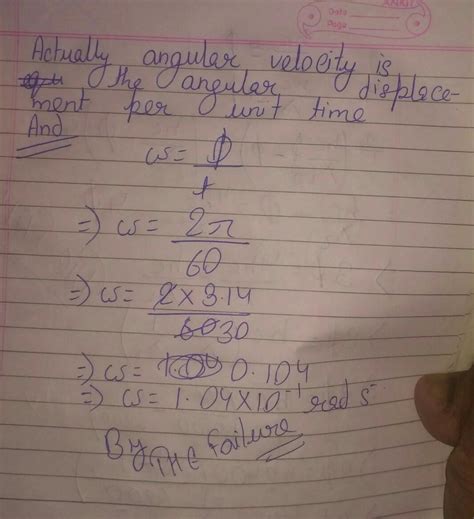 Date
Page
Actually angular velocity is
the angular displace-
ment per unit time
And
ω = θ/t
⇒ ω = 2π/60
⇒ ω = 2 × 3.14/60 30
⇒ ω = 1.04 0.104
⇒ ω = 1.04 × 10⁻¹ rad s⁻
By THE Failure